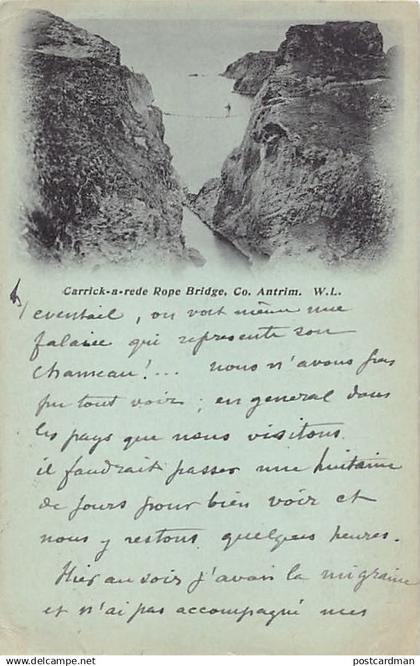 Carrick-a-rede Rope Bridge, Co. Antrim. W.L.
eventail, on voit même une
falaise qui représente son
chameau!... nous n'avons pas
pu tout voir ; en general dans
les pays que nous visitons
il faudrait passer une huitaine
de jours pour bien voir et
nous y restons quelques heures.
Hier au soir j'avais la migraine
et n'ai pas accompagné mes
postcardman.
© postcardman.com